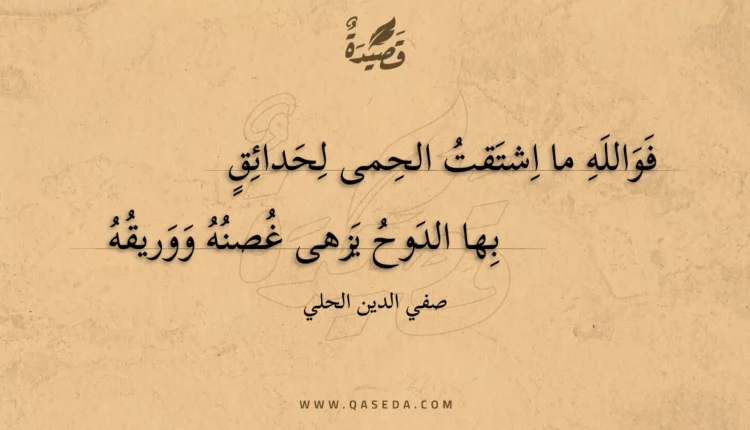 قَصِيْدَةٌ
فَوَاللَهِ ما اِشتَقتُ الحِمى لِحَدائِقٍ
بِها الدَوحُ يَزهى غُصنُهُ وَوَريقُهُ
صفي الدين الحلي
WWW.QASEDA.COM